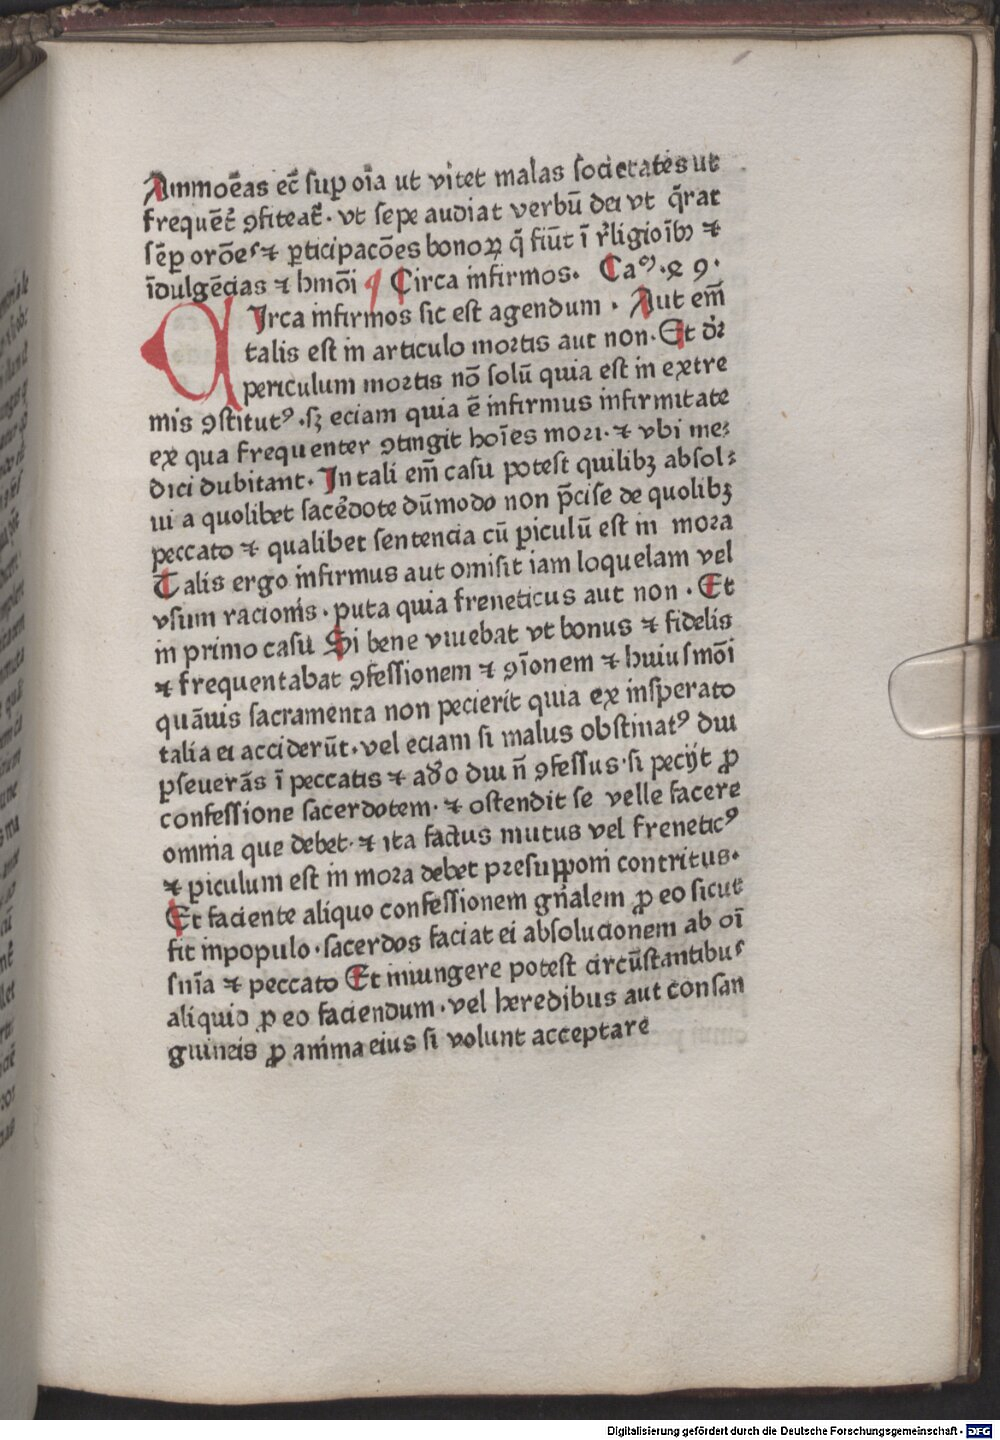 Ammoēas ec̄ sup̱ oīa ut vitet malas societates ut
frequēt̄ ꝯfiteat̄. vt sepe audiat verbū dei vt q̄rat
sēp̱ orōes ⁊ ꝑticipacōes bonoꝝ q̄ fiūt ī r̄ligioīb ⁊
īdulgēcias ⁊ hmōi Circa infirmos. Caᵒ. 29.
Irca infirmos sic est agendum. Aut em̄
talis est in articulo mortis aut non. Et dr̄
periculum mortis nō solū quia est in extre
mis ꝯstitutꝰ. sꝫ eciam quia ē infirmus infirmitate
ex qua frequenter ꝯtingit hoīes mori. ⁊ vbi me⸗
dici dubitant. In tali em̄ casu potest quilibꝫ absol⸗
ui a quolibet sacēdote dūmodo non p̄cise de quolibꝫ
peccato ⁊ qualibet sentencia cū ꝑiculū est in mora
Talis ergo infirmus aut omisit iam loquelam vel
vsum racionis. puta quia freneticus aut non. Et
in primo casu Si bene viuebat vt bonus ⁊ fidelis
⁊ frequentabat ꝯfessionem ⁊ ꝯīonem ⁊ huiusmōi
quāuis sacramenta non pecierit quia ex insperato
talia ei acciderūt. vel eciam si malus obstinatꝰ diu
ꝑseuerās ī peccatis ⁊ adeo diu n̄ ꝯfessus. si pecijt ꝓ
confessione sacerdotem. ⁊ ostendit se velle facere
omnia que debet. ⁊ ita factus mutus vel freneticꝰ
⁊ ꝑiculum est in mora debet presupponi contritus.
Et faciente aliquo confessionem gn̄alem ꝓ eo sicut
fit inpopulo. sacerdos faciat ei absolucionem ab oī
sn̄ia ⁊ peccato Et iniungere potest circūstantibus
aliquid ꝓ eo faciendum. vel heredibus aut consan
guineis ꝓ anima eius si volunt acceptare
Digitalisierung gefördert durch die Deutsche Forschungsgemeinschaft - DFG